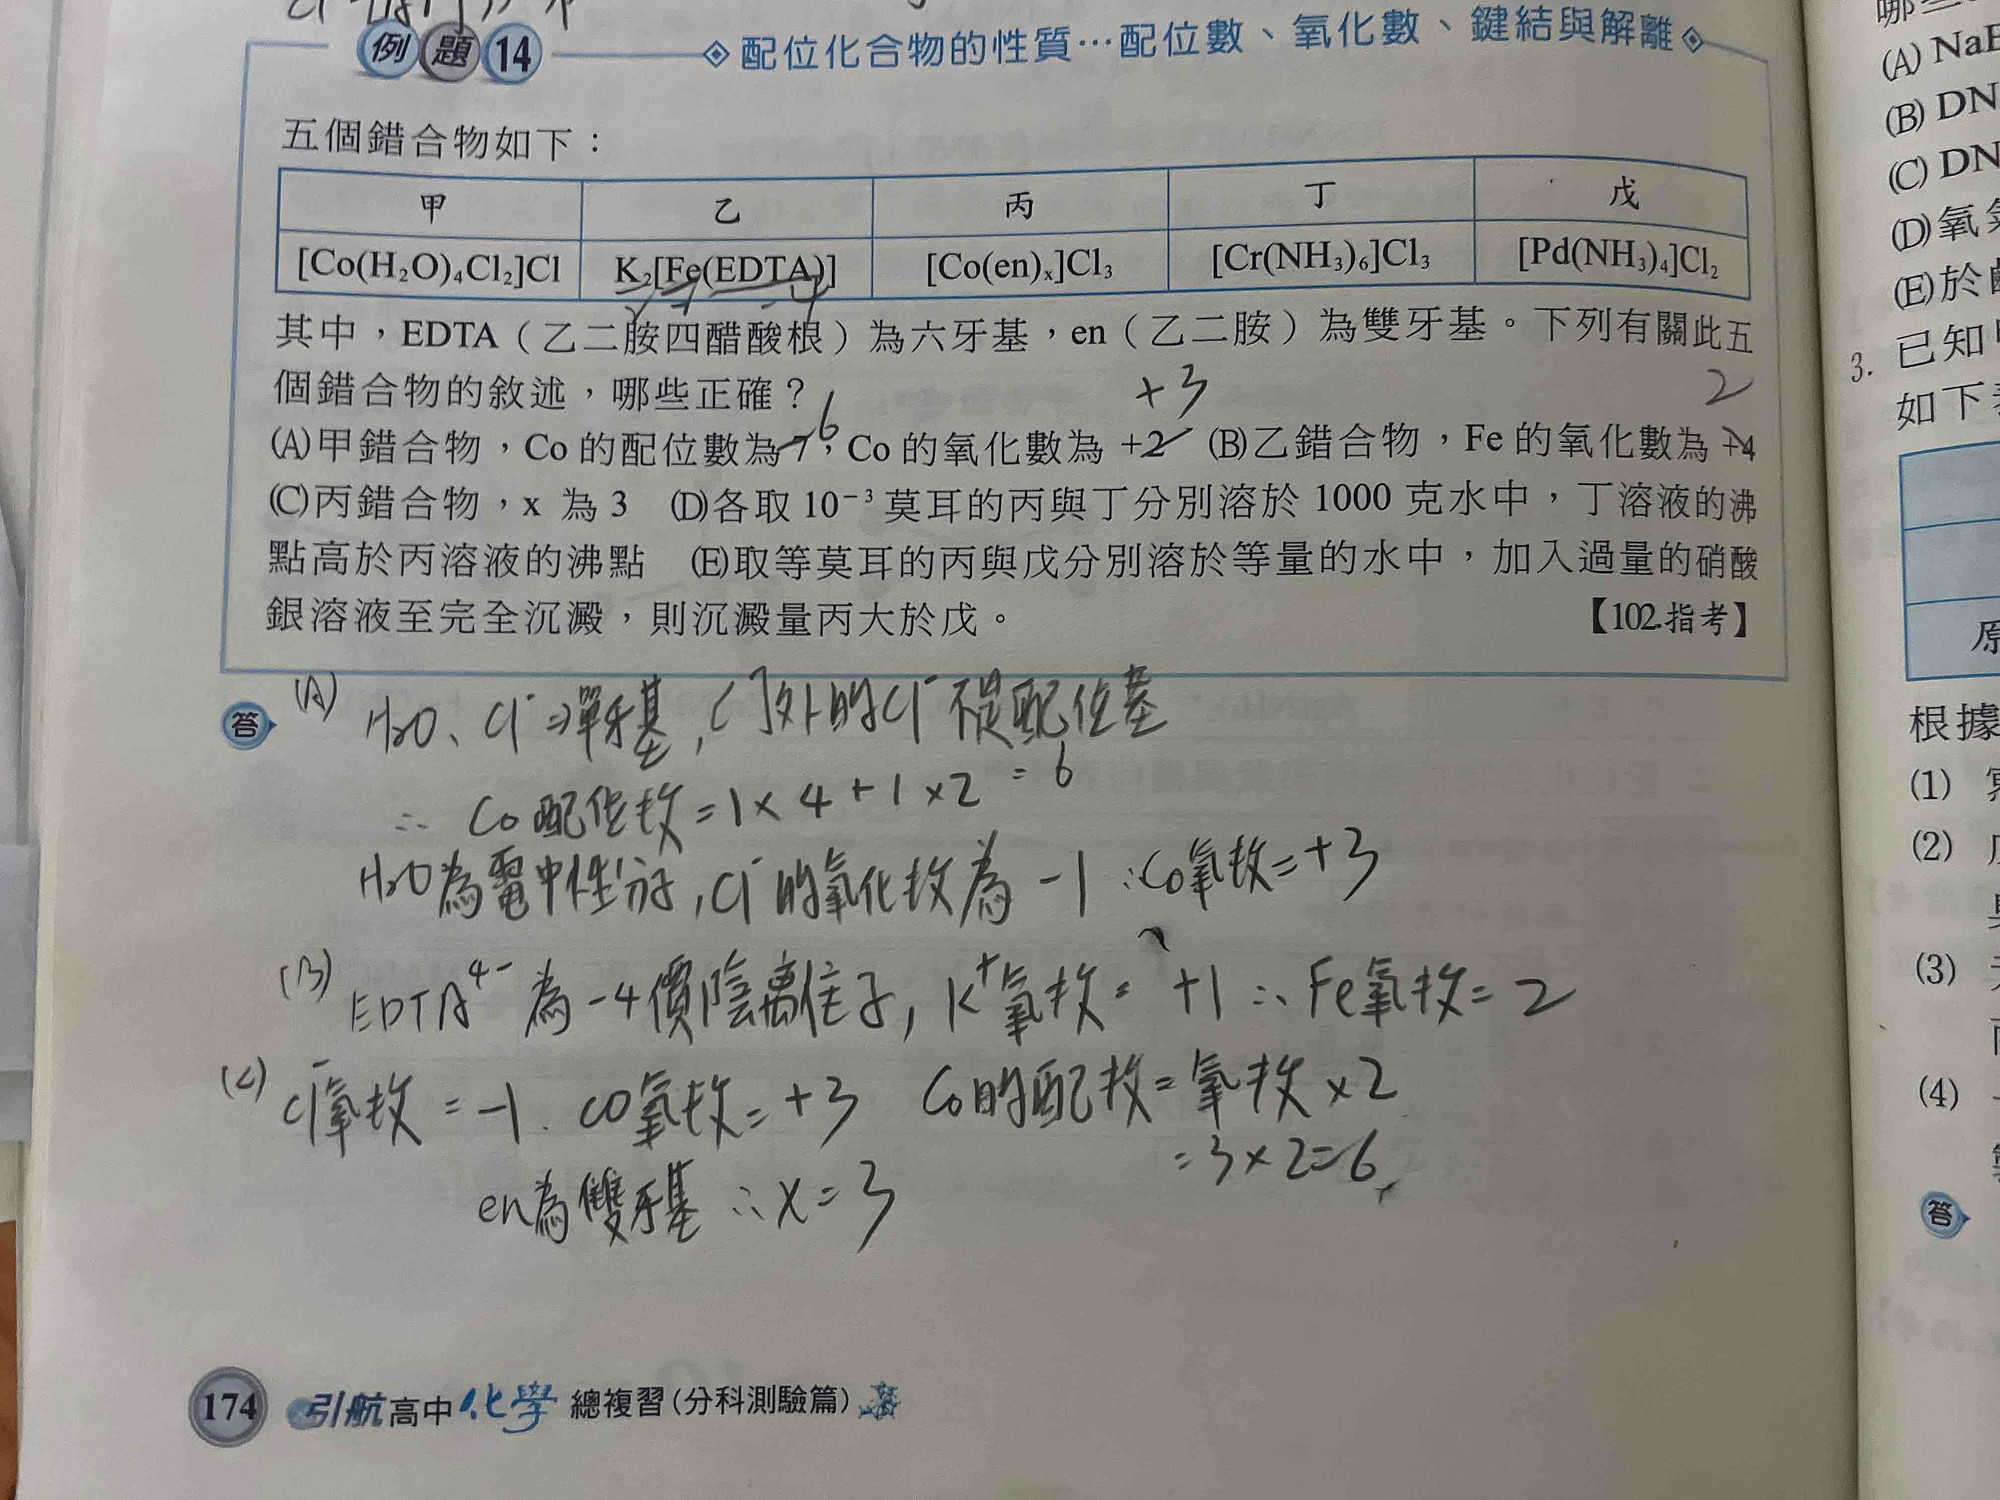 例題14 配位化合物的性質…配位數、氧化數、鍵結與解離
五個錯合物如下：
甲 乙 丙 丁 戊
[Co(H₂O)₄Cl₂]Cl K₂[Fe(EDTA)] [Co(en)ₓ]Cl₃ [Cr(NH₃)₆]Cl₃ [Pd(NH₃)₄]Cl₂
其中，EDTA（乙二胺四醋酸根）為六牙基，en（乙二胺）為雙牙基。下列有關此五
個錯合物的敘述，哪些正確？
+3
2
6
(A)甲錯合物，Co 的配位數為 7，Co 的氧化數為 +2 (B)乙錯合物，Fe 的氧化數為 +4
(C)丙錯合物，x 為 3 (D)各取 10⁻³ 莫耳的丙與丁分別溶於 1000 克水中，丁溶液的沸
點高於丙溶液的沸點 (E)取等莫耳的丙與戊分別溶於等量的水中，加入過量的硝酸
銀溶液至完全沉澱，則沉澱量丙大於戊。 【102.指考】
答 (A) H₂O、Cl⁻⇒單牙基，[ ]外的Cl⁻不是配位基
∴ Co配位數=1×4+1×2=6
H₂O為電中性分子，Cl⁻的氧化數為-1 ∴Co氧數=+3
(B) EDTA⁴⁻為-4價陰離子，K⁺氧數=+1 ∴Fe氧數=2
(C) Cl⁻氧數=-1. CO氧數=+3 Co的配數=氧數×2
=3×2=6
en為雙牙基 ∴x=3
174 引航高中化學 總複習(分科測驗篇)
(A) Na
(B) DN
(C) DN
(D)氧
(E)於
3. 已知
如下
原
根據
(1)
(2)
(3)
(4)
答